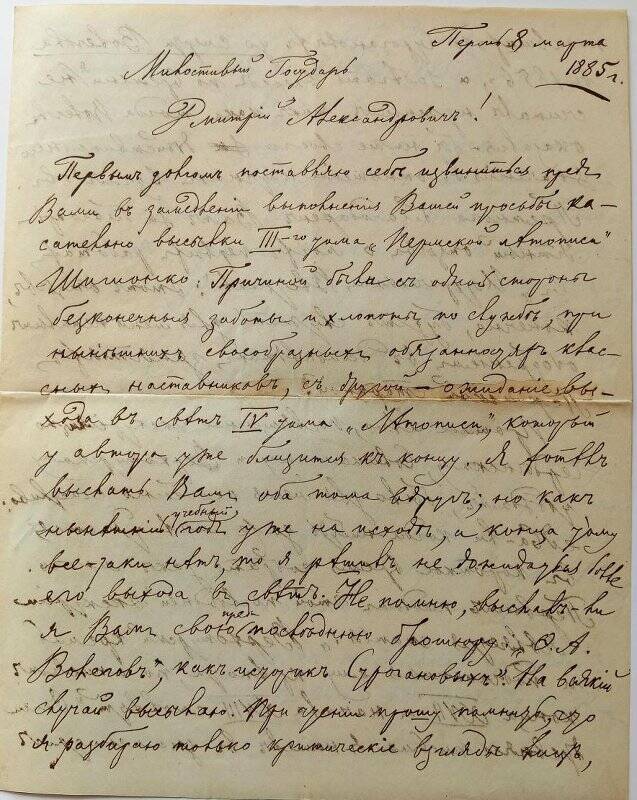 Пермь 8 марта
1885 г.
Милостивый Государь
Дмитрій Александровичъ!
Первымъ долгомъ поставляю себѣ извиниться предъ
Вами въ замедленіи выполненія Вашей просьбы ка-
сательно высылки III-го тома „Пермской лѣтописи“
Шишонко: Причиной были съ одной стороны
безконечныя заботы и хлопоты по службѣ, при
нынѣшнихъ своеобразныхъ обязанностяхъ клас-
сныхъ наставниковъ, съ другой — ожиданіе вы-
хода въ свѣтъ IV тома „Лѣтописи“, который
у автора уже близится къ концу. Я хотѣлъ
выслать Вамъ оба тома вдругъ; но какъ
нынѣшній учебный годъ уже на исходѣ, а конца тому
все-таки нѣтъ, то я рѣшилъ не дожидаться болѣе
его выхода въ свѣтъ. Не помню, выслалъ-ли
я Вамъ свою пред послѣднюю брошюру „Ѳ. А.
Волеговъ, какъ историкъ Строгановыхъ“. На всякій
случай высылаю. При чтеніи прошу помнить, что
я разбираю только критическіе взгляды